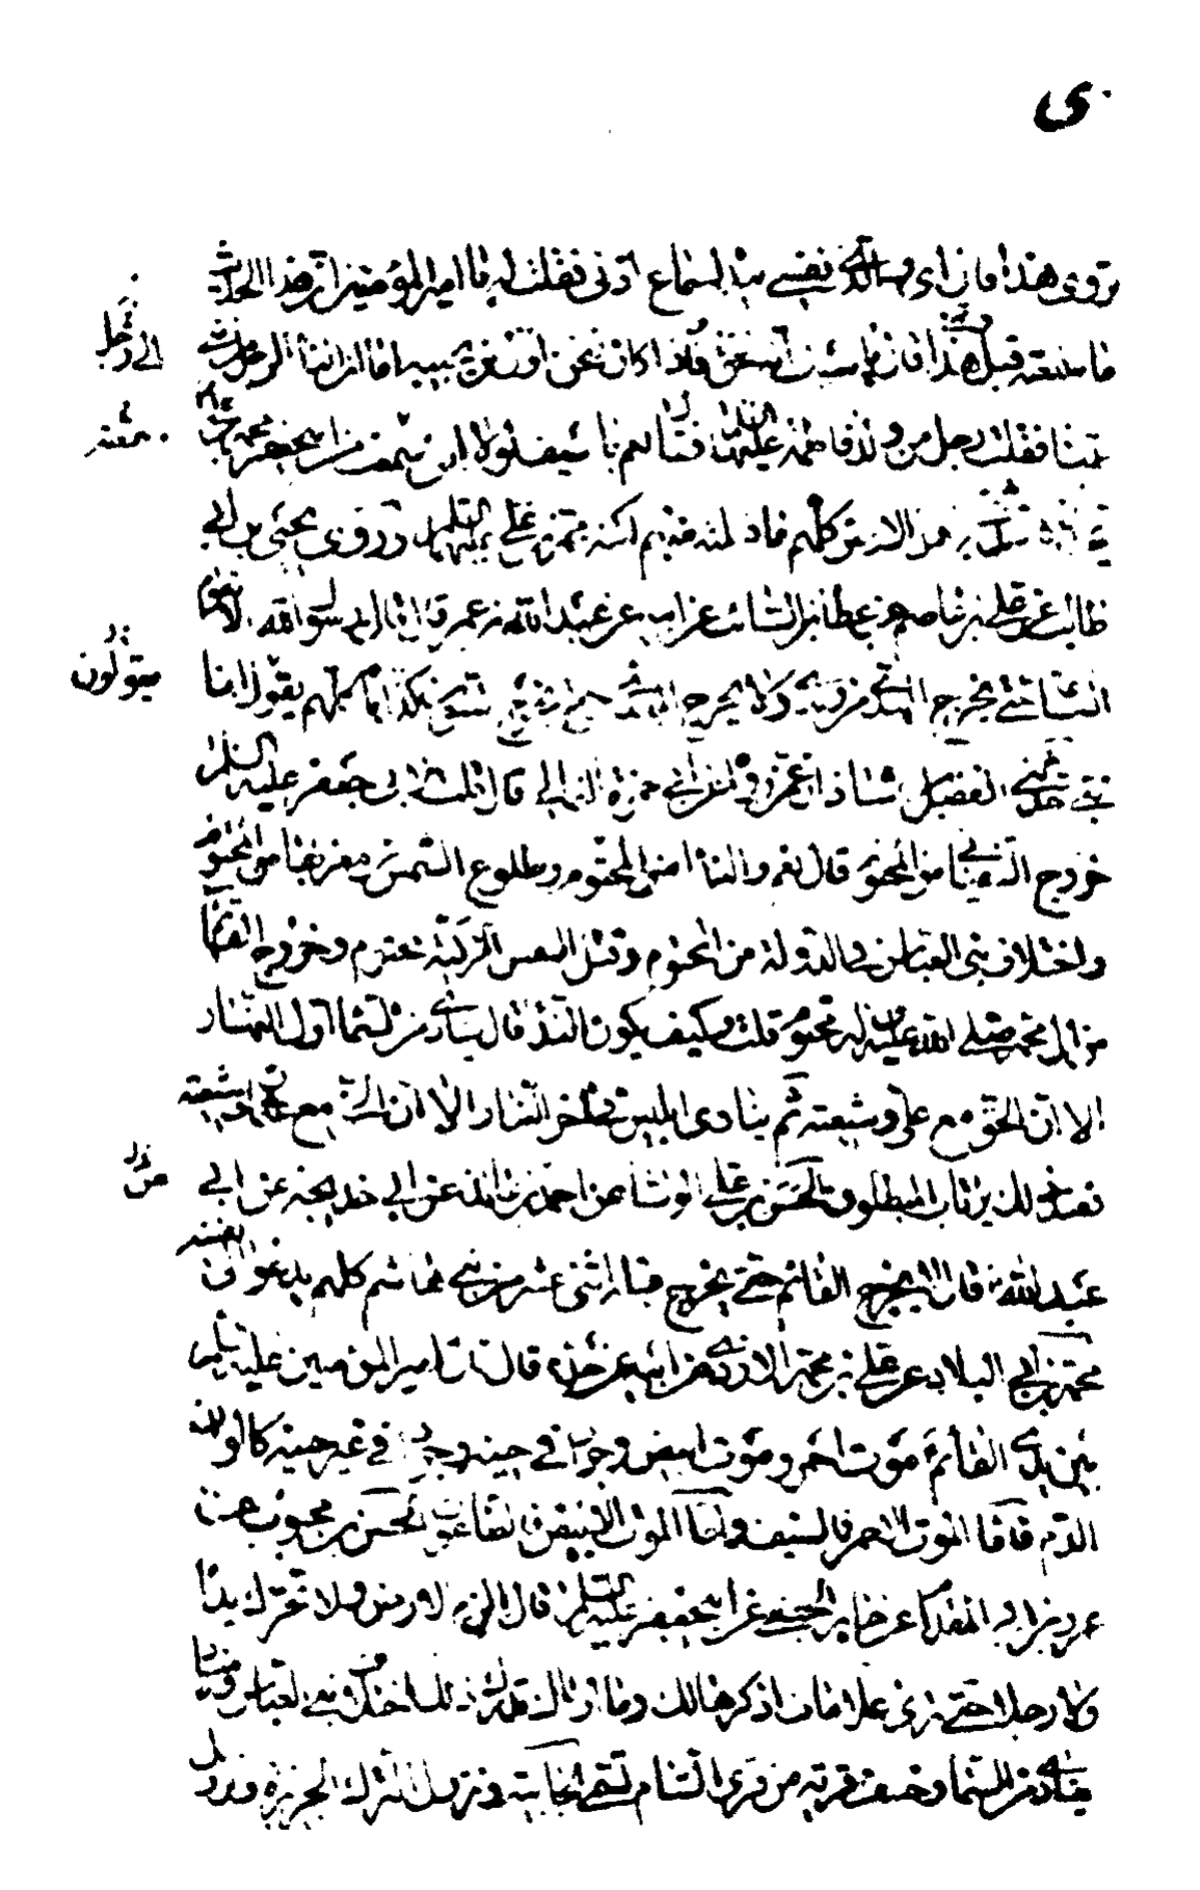 تروى هذا قال اى والذى نفسى بيده لسماع اذنى فقلت له يا امير المؤمنين ان هذا الحديث
ما سمعته قبل هذا فقال يا سيف انه لحق فاذا كان فنحن اولى من يجيبه اما ان النداء الى رجل من
الى رجل
بنى عمنا فقلت رجل من ولد فاطمة عليها السلام فقال نعم يا سيف لولا انى سمعت من ابى جعفر محمد بن
سمعته
على من الارض كلهم ما قبلته منهم لكنه محمد بن على عليهما السلام وروى يحيى بن ابى
طالب عن على بن عاصم عن عطا بن السائب عن ابيه عن عبد الله بن عمر قال قال رسول الله لا تقوم
الساعة حتى يخرج المهدى من ولدى ولا يخرج المهدى حتى يخرج ستون كذابا كلهم يقول انا
يقولون
نبى الفضل بن شاذان عمن رواه عن ابى حمزة الثمالى قال قلت لابى جعفر عليه السلام
خروج السفيانى من المحتوم قال نعم والنداء من المحتوم وطلوع الشمس من مغربها من المحتوم
واختلاف بنى العباس فى الدولة من المحتوم وقتل النفس الزكية محتوم وخروج القائم
من ال محمد صلى الله عليه واله محتوم قلت وكيف يكون النداء قال ينادى من السماء اول النهار
الا ان الحق مع على وشيعته ثم ينادى ابليس فى اخر النهار الا ان الحق مع وشيعته
فعند ذلك يرتاب المبطلون الحسن بن على الوشا عن احمد بن عائذ عن ابى خديجة عن ابى
عن
عبد الله قال لا يخرج القائم حتى يخرج قبله اثنى عشر من بنى هاشم كلهم يدعو الى نفسه
محمد بن ابى البلاد عن على بن محمد الازدى عن ابيه عن جده قال قال امير المؤمنين عليه السلم
بين يدى القائم موت احمر وموت ابيض وجراد فى حينه وجراد فى غير حينه كالوان
الدم فاما الموت الاحمر فالسيف واما الموت الابيض فالطاعون الحسن بن محبوب عن
عمرو بن ابى المقدام عن جابر الجعفى عن ابى جعفر عليه السلم قال الزم الارض ولا تحرك يدا
ولا رجلا حتى ترى علامات اذكرها لك وما اراك تدرك ذلك اختلاف بنى العباس ومناد
ينادى من السماء وخسف قرية من قرى الشام تسمى الجابية ونزول الترك الجزيرة ونزول